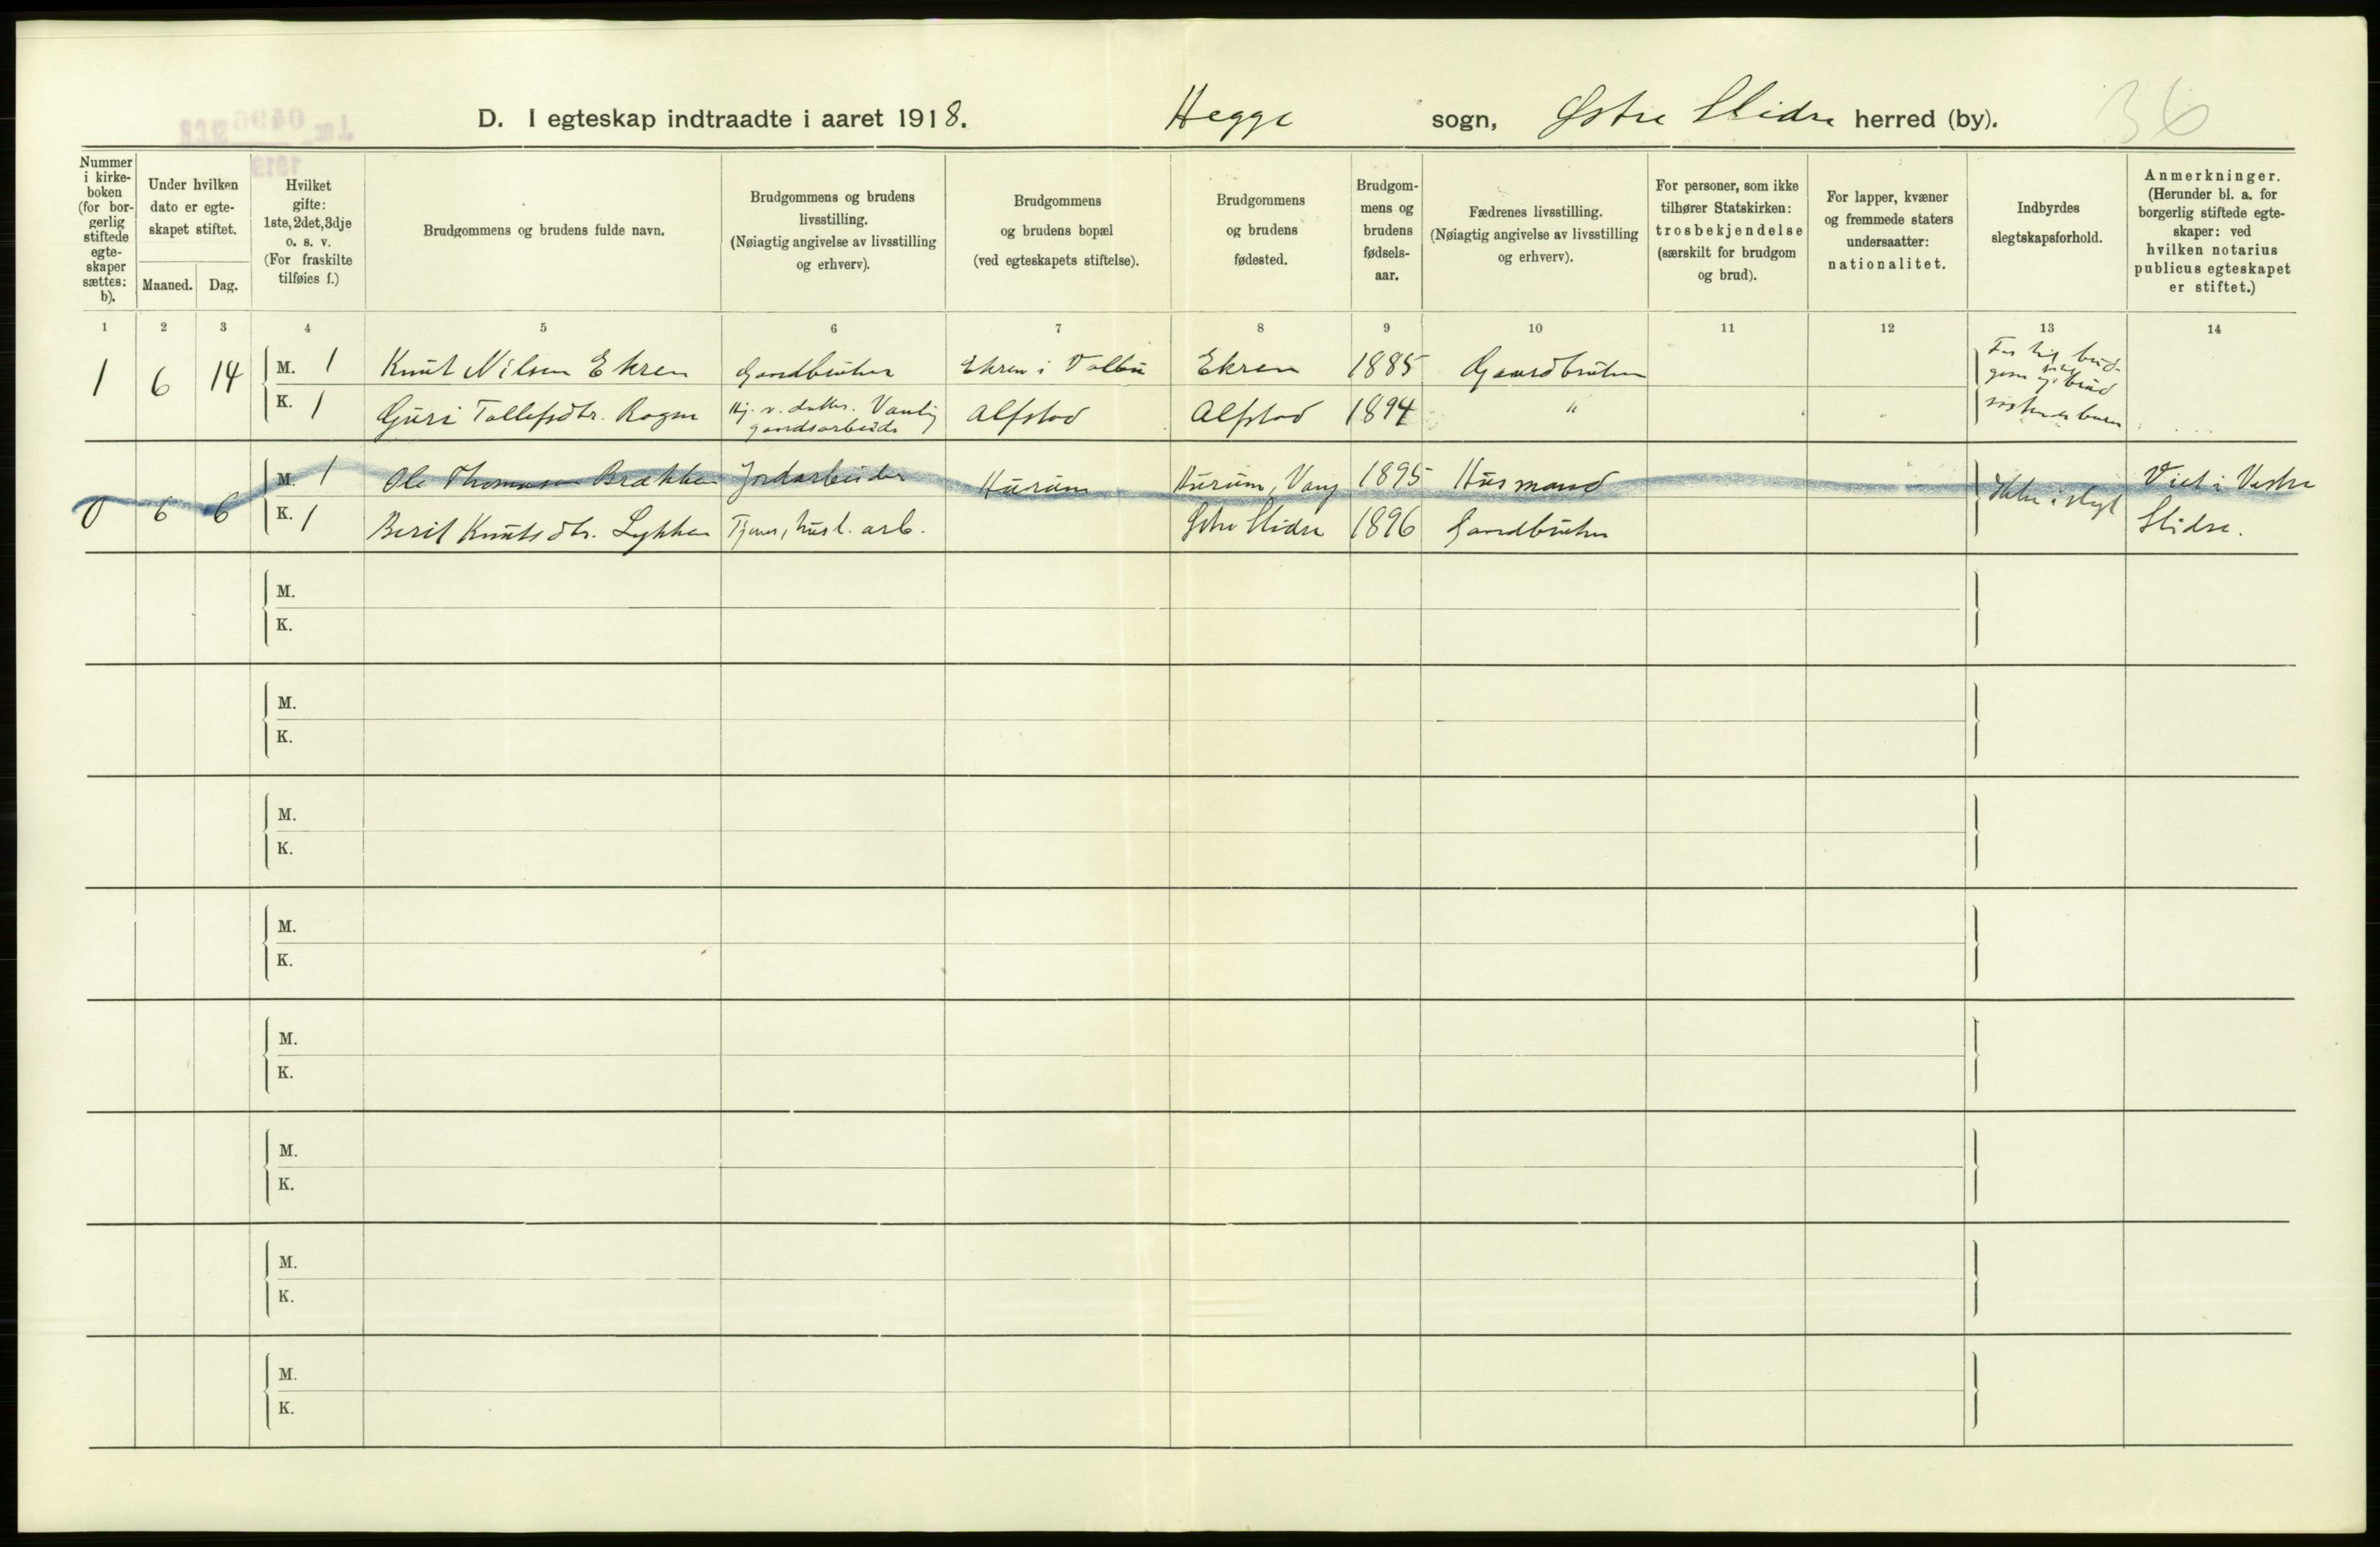 D. I egteskap indtraadte i aaret 1918. Hegge sogn, Østre Slidre herred (by). 36
Nummer i kirke-boken (for bor-gerlig stiftede egte-skaper sættes: b).
Under hvilken dato er egte-skapet stiftet.
Maaned. Dag.
Hvilket gifte: 1ste, 2det, 3dje o. s. v. (For fraskilte tilføies f.)
Brudgommens og brudens fulde navn.
Brudgommens og brudens livsstilling. (Nøiagtig angivelse av livsstilling og erhverv).
Brudgommens og brudens bopæl (ved egteskapets stiftelse).
Brudgommens og brudens fødested.
Brudgom-mens og brudens fødsels-aar.
Fædrenes livsstilling. (Nøiagtig angivelse av livsstilling og erhverv).
For personer, som ikke tilhører Statskirken: trosbekjendelse (særskilt for brudgom og brud).
For lapper, kvæner og fremmede staters undersaatter: nationalitet.
Indbyrdes slegtskapsforhold.
Anmerkninger. (Herunder bl. a. for borgerlig stiftede egte-skaper: ved hvilken notarius publicus egteskapet er stiftet.)
1 2 3 4 5 6 7 8 9 10 11 12 13 14
1 6 14 M. 1 Knut Nilsen Ekren Gardbruker Ekren i Volbu Ekren 1885 Gaardbruker
K. 1 Guri Tollefsdtr. Rogne Hj. v. datter. Vanlig gardsarbeide Alfstad Alfstad 1894 "
Far til brud-
gom og brud
søskendebarn
0 6 6 M. 1 Ole Thomasen Brækken Jordarbeider Hurum Hurum, Vang 1895 Husmand Ikke i slegt Viet i Vestre
K. 1 Berit Knutsdtr. Lykken Tjener, husl. arb. Østre Slidre 1896 Gardbruker Slidre.
M.
K.
M.
K.
M.
K.
M.
K.
M.
K.
M.
K.
M.
K.
M.
K.